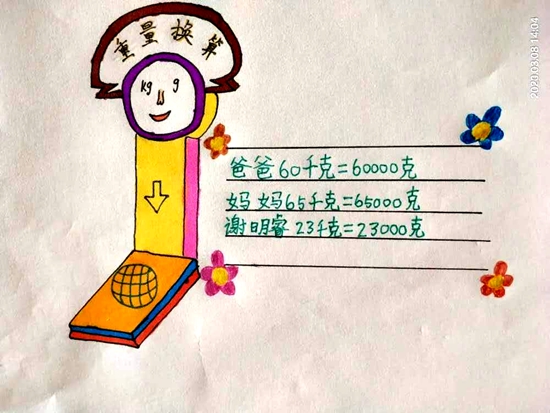 重量换算
kg g
爸爸60千克=60000克
妈妈65千克=65000克
谢明睿23千克=23000克
2020.03.08 14:04